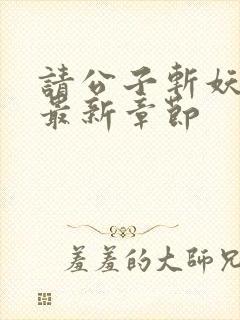 請公子斬妖
最新章節
羞羞的大師兄